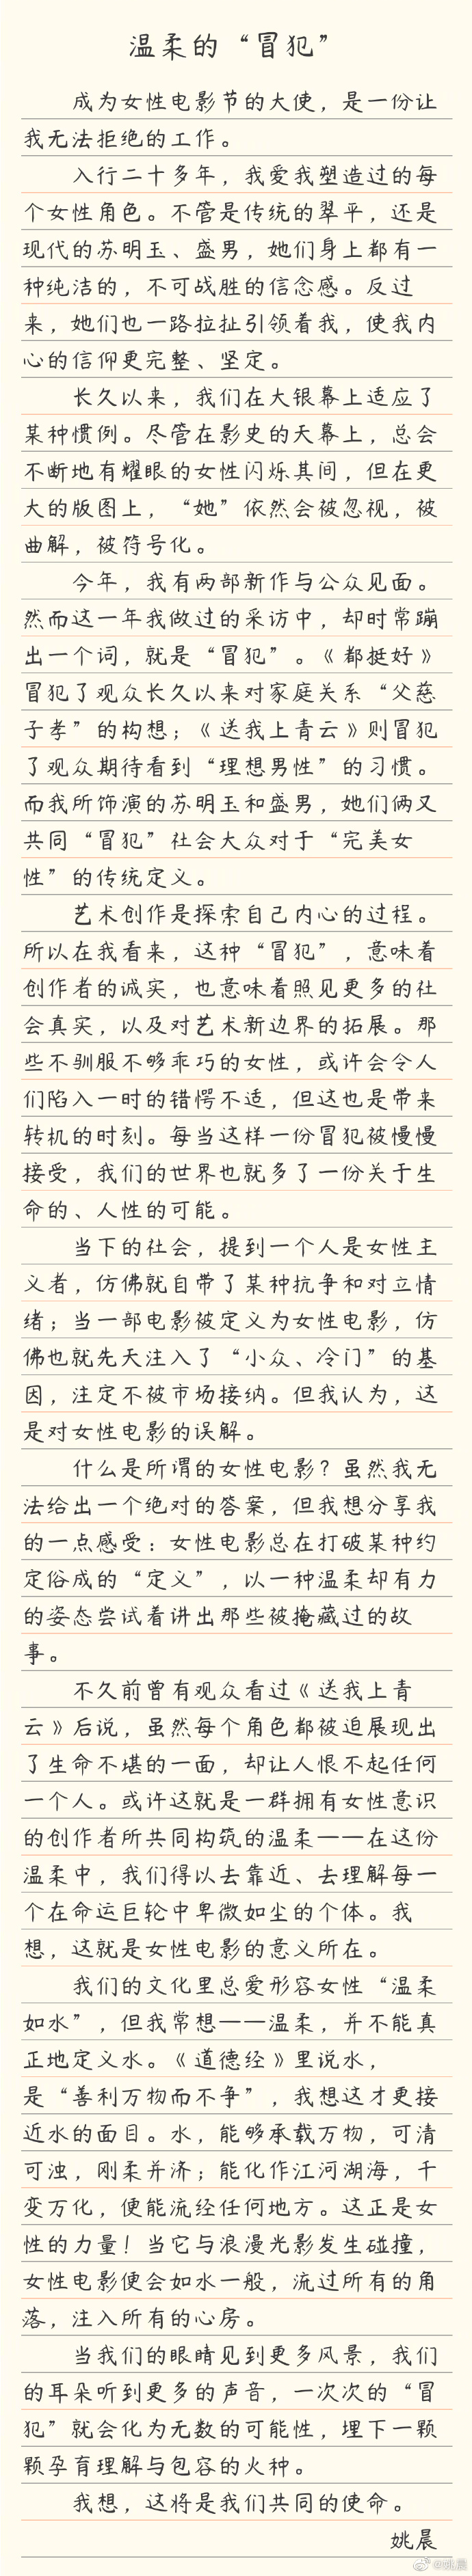 温柔的“冒犯”
成为女性电影节的大使，是一份让
我无法拒绝的工作。
入行二十多年，我爱我塑造过的每
个女性角色。不管是传统的翠平，还是
现代的苏明玉、盛男，她们身上都有一
种纯洁的，不可战胜的信念感。反过
来，她们也一路拉扯引领着我，使我内
心的信仰更完整、坚定。
长久以来，我们在大银幕上适应了
某种惯例。尽管在影史的天幕上，总会
不断地有耀眼的女性闪烁其间，但在更
大的版图上，“她”依然会被忽视，被
曲解，被符号化。
今年，我有两部新作与公众见面。
然而这一年我做过的采访中，却时常蹦
出一个词，就是“冒犯”。《都挺好》
冒犯了观众长久以来对家庭关系“父慈
子孝”的构想；《送我上青云》则冒犯
了观众期待看到“理想男性”的习惯。
而我所饰演的苏明玉和盛男，她们俩又
共同“冒犯”社会大众对于“完美女
性”的传统定义。
艺术创作是探索自己内心的过程。
所以在我看来，这种“冒犯”，意味着
创作者的诚实，也意味着照见更多的社
会真实，以及对艺术新边界的拓展。那
些不驯服不够乖巧的女性，或许会令人
们陷入一时的错愕不适，但这也是带来
转机的时刻。每当这样一份冒犯被慢慢
接受，我们的世界也就多了一份关于生
命的、人性的可能。
当下的社会，提到一个人是女性主
义者，仿佛就自带了某种抗争和对立情
绪；当一部电影被定义为女性电影，仿
佛也就先天注入了“小众、冷门”的基
因，注定不被市场接纳。但我认为，这
是对女性电影的误解。
什么是所谓的女性电影？虽然我无
法给出一个绝对的答案，但我想分享我
的一点感受：女性电影总在打破某种约
定俗成的“定义”，以一种温柔却有力
的姿态尝试着讲出那些被掩藏过的故
事。
不久前曾有观众看过《送我上青
云》后说，虽然每个角色都被迫展现出
了生命不堪的一面，却让人恨不起任何
一个人。或许这就是一群拥有女性意识
的创作者所共同构筑的温柔——在这份
温柔中，我们得以去靠近、去理解每一
个在命运巨轮中卑微如尘的个体。我
想，这就是女性电影的意义所在。
我们的文化里总爱形容女性“温柔
如水”，但我常想——温柔，并不能真
正地定义水。《道德经》里说水，
是“善利万物而不争”，我想这才更接
近水的面目。水，能够承载万物，可清
可浊，刚柔并济；能化作江河湖海，千
变万化，便能流经任何地方。这正是女
性的力量！当它与浪漫光影发生碰撞，
女性电影便会如水一般，流过所有的角
落，注入所有的心房。
当我们的眼睛见到更多风景，我们
的耳朵听到更多的声音，一次次的“冒
犯”就会化为无数的可能性，埋下一颗
颗孕育理解与包容的火种。
我想，这将是我们共同的使命。
姚晨
@姚晨